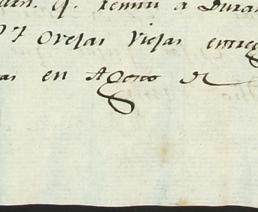 q. remiti a Duran
Ovejas Viejas entreg
as en Agosto de